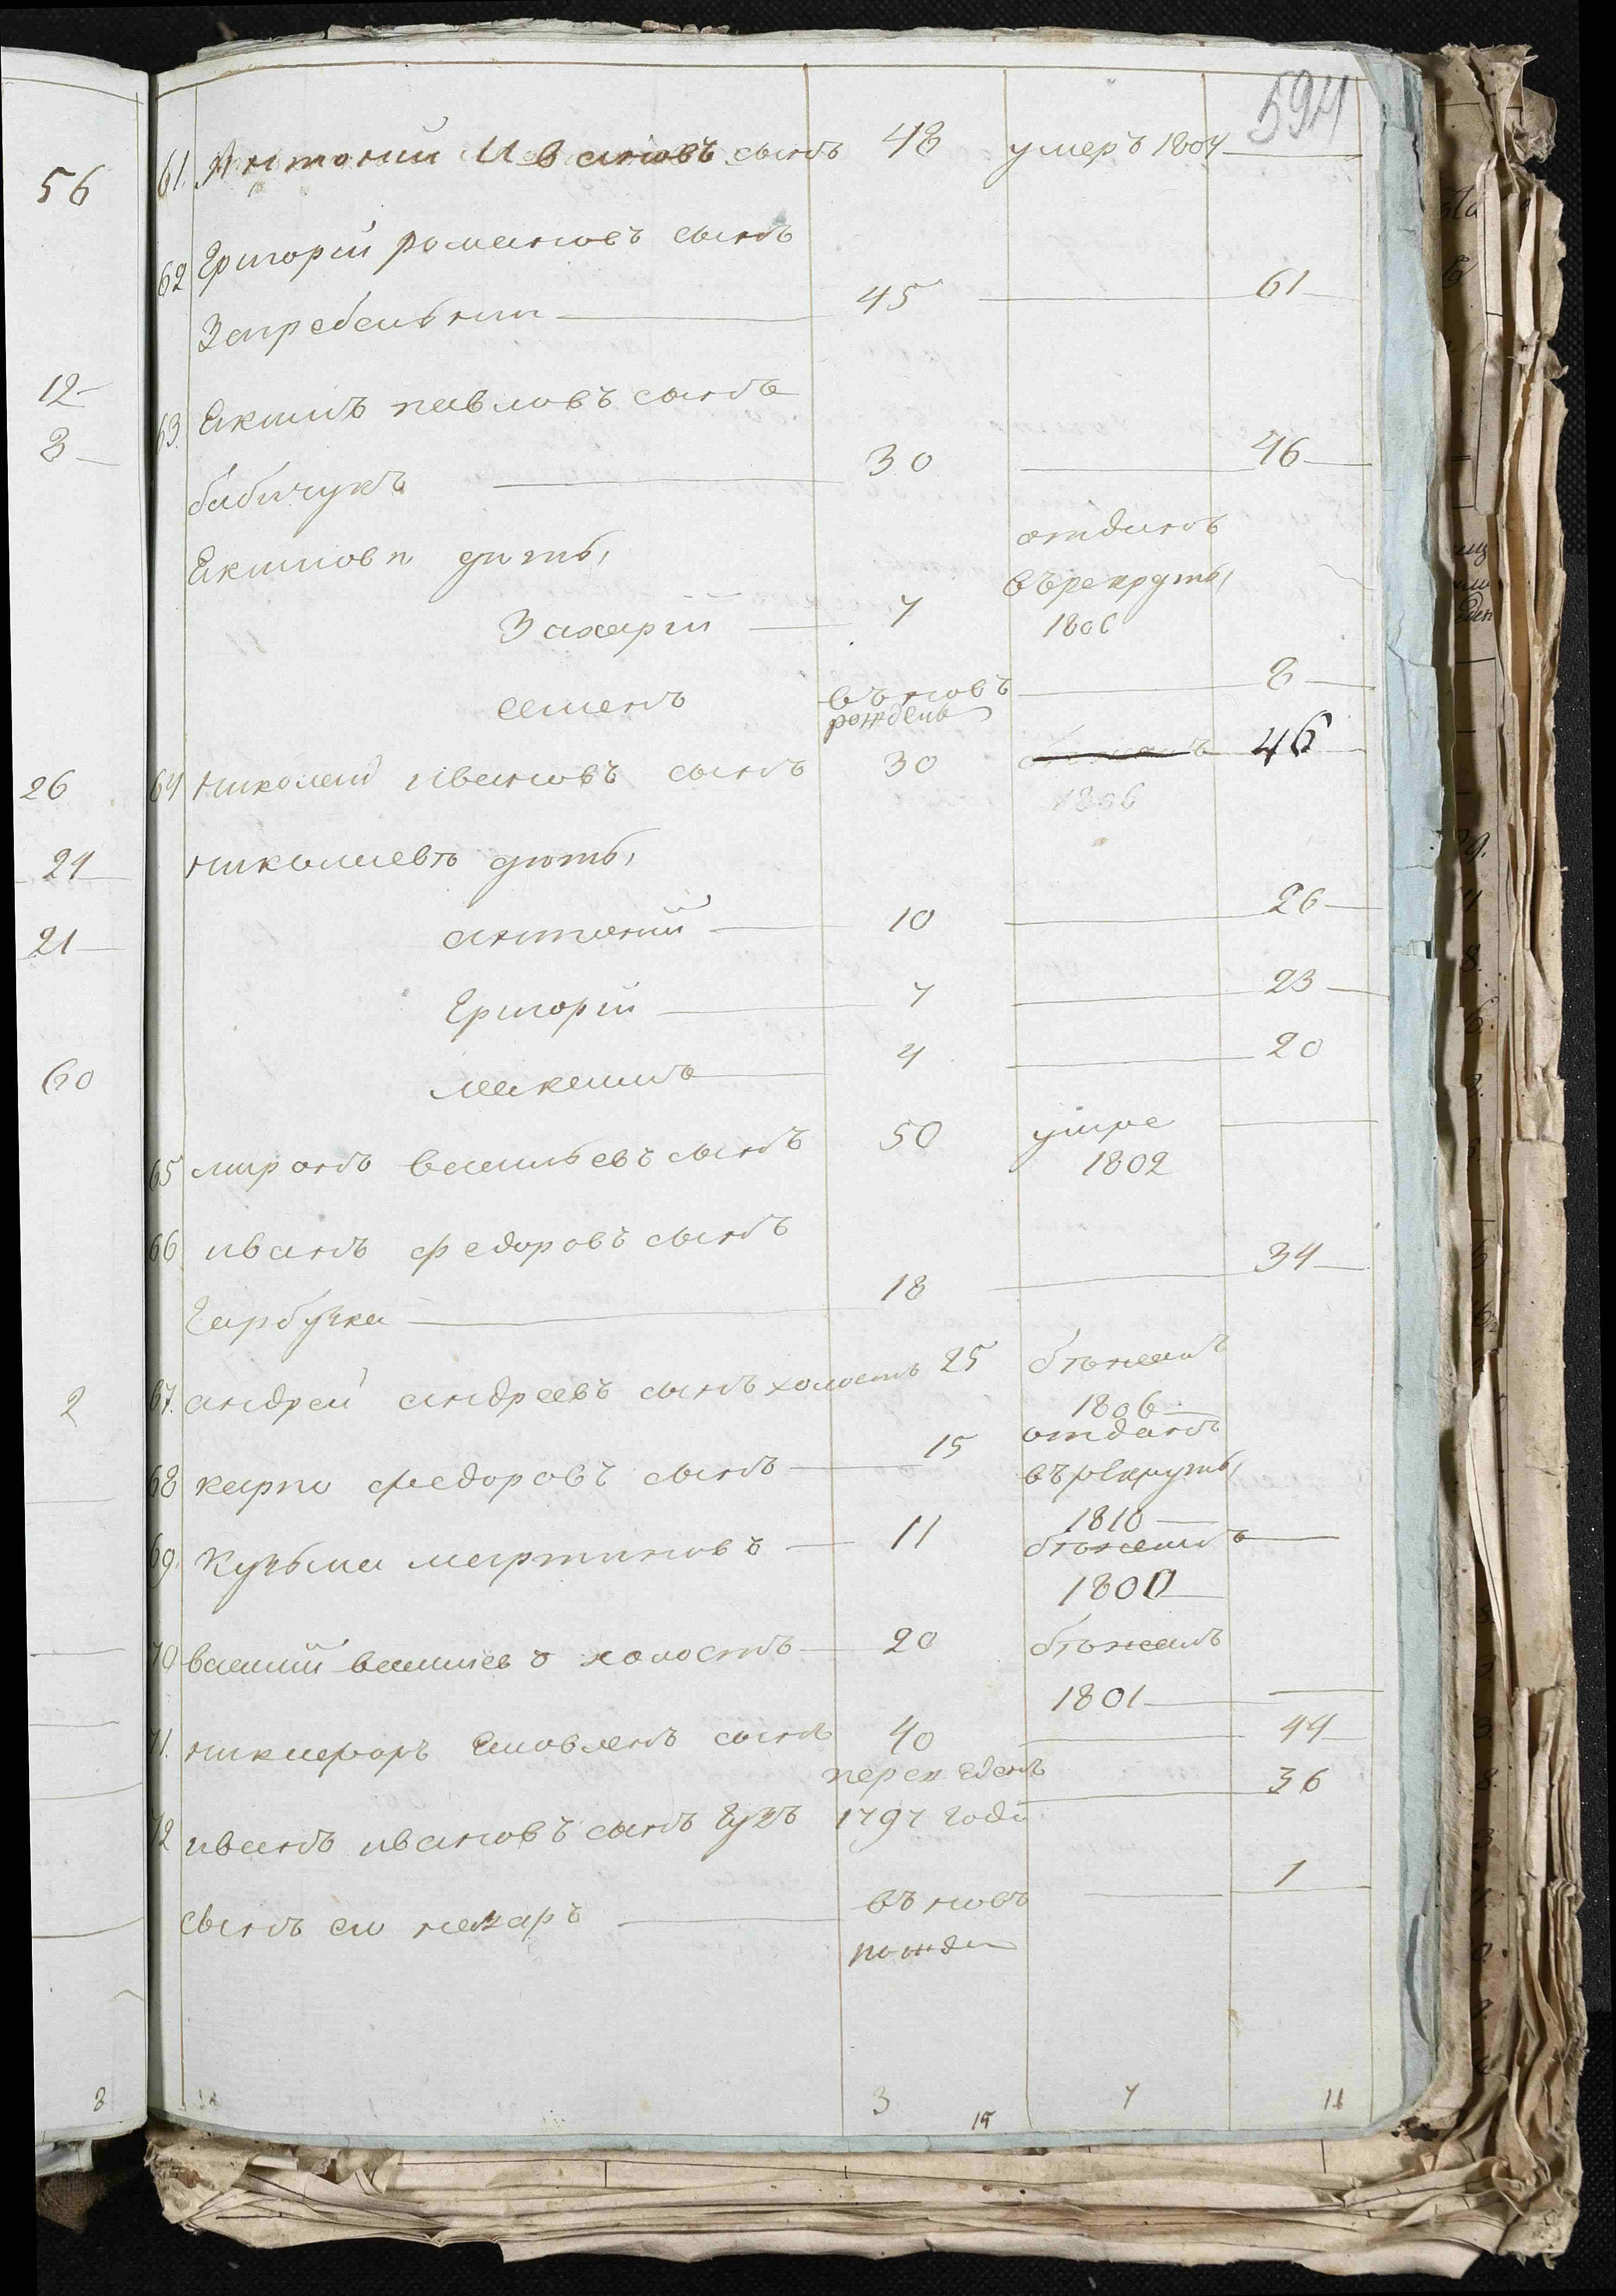 594
61. Антоний Ивановъ сынъ 48 умеръ 1804
62 Григорій романовъ сынъ
Загребельнии 45 61
63 Екимъ павловъ сынъ
бабичукъ 30 46
Екимовы дѣты, отданъ
Захарій 7 въ рекруты, 1806
семенъ въновь рожденъ 8
64 николай ивановъ сынъ 30 46
1806
николаевы дѣты,
антоний 10 26
Григорій 7 23
максимъ 4 20
65 миронъ васильевъ сынъ 50 умре 1802
66 иванъ федоровъ сынъ
Гарбузка 18 34
67. андрей андреевъ сынъ холостъ 25 бѣжалъ 1806
68 карпо федоровъ сынъ 15 отданъ въ рекруты, 1810
69. Кузьма мартиновъ 11 бѣжалъ 1800
70 василий васильевъ холостъ 20 бѣжалъ 1801
71. никифоръ сынъ 40 44
72 иванъ ивановъ сынъ Гузъ 1797 года 36
сынъ его назаръ въновь рожде 1
3 15 7 11
56
12
8
26
24
21
60
2
8